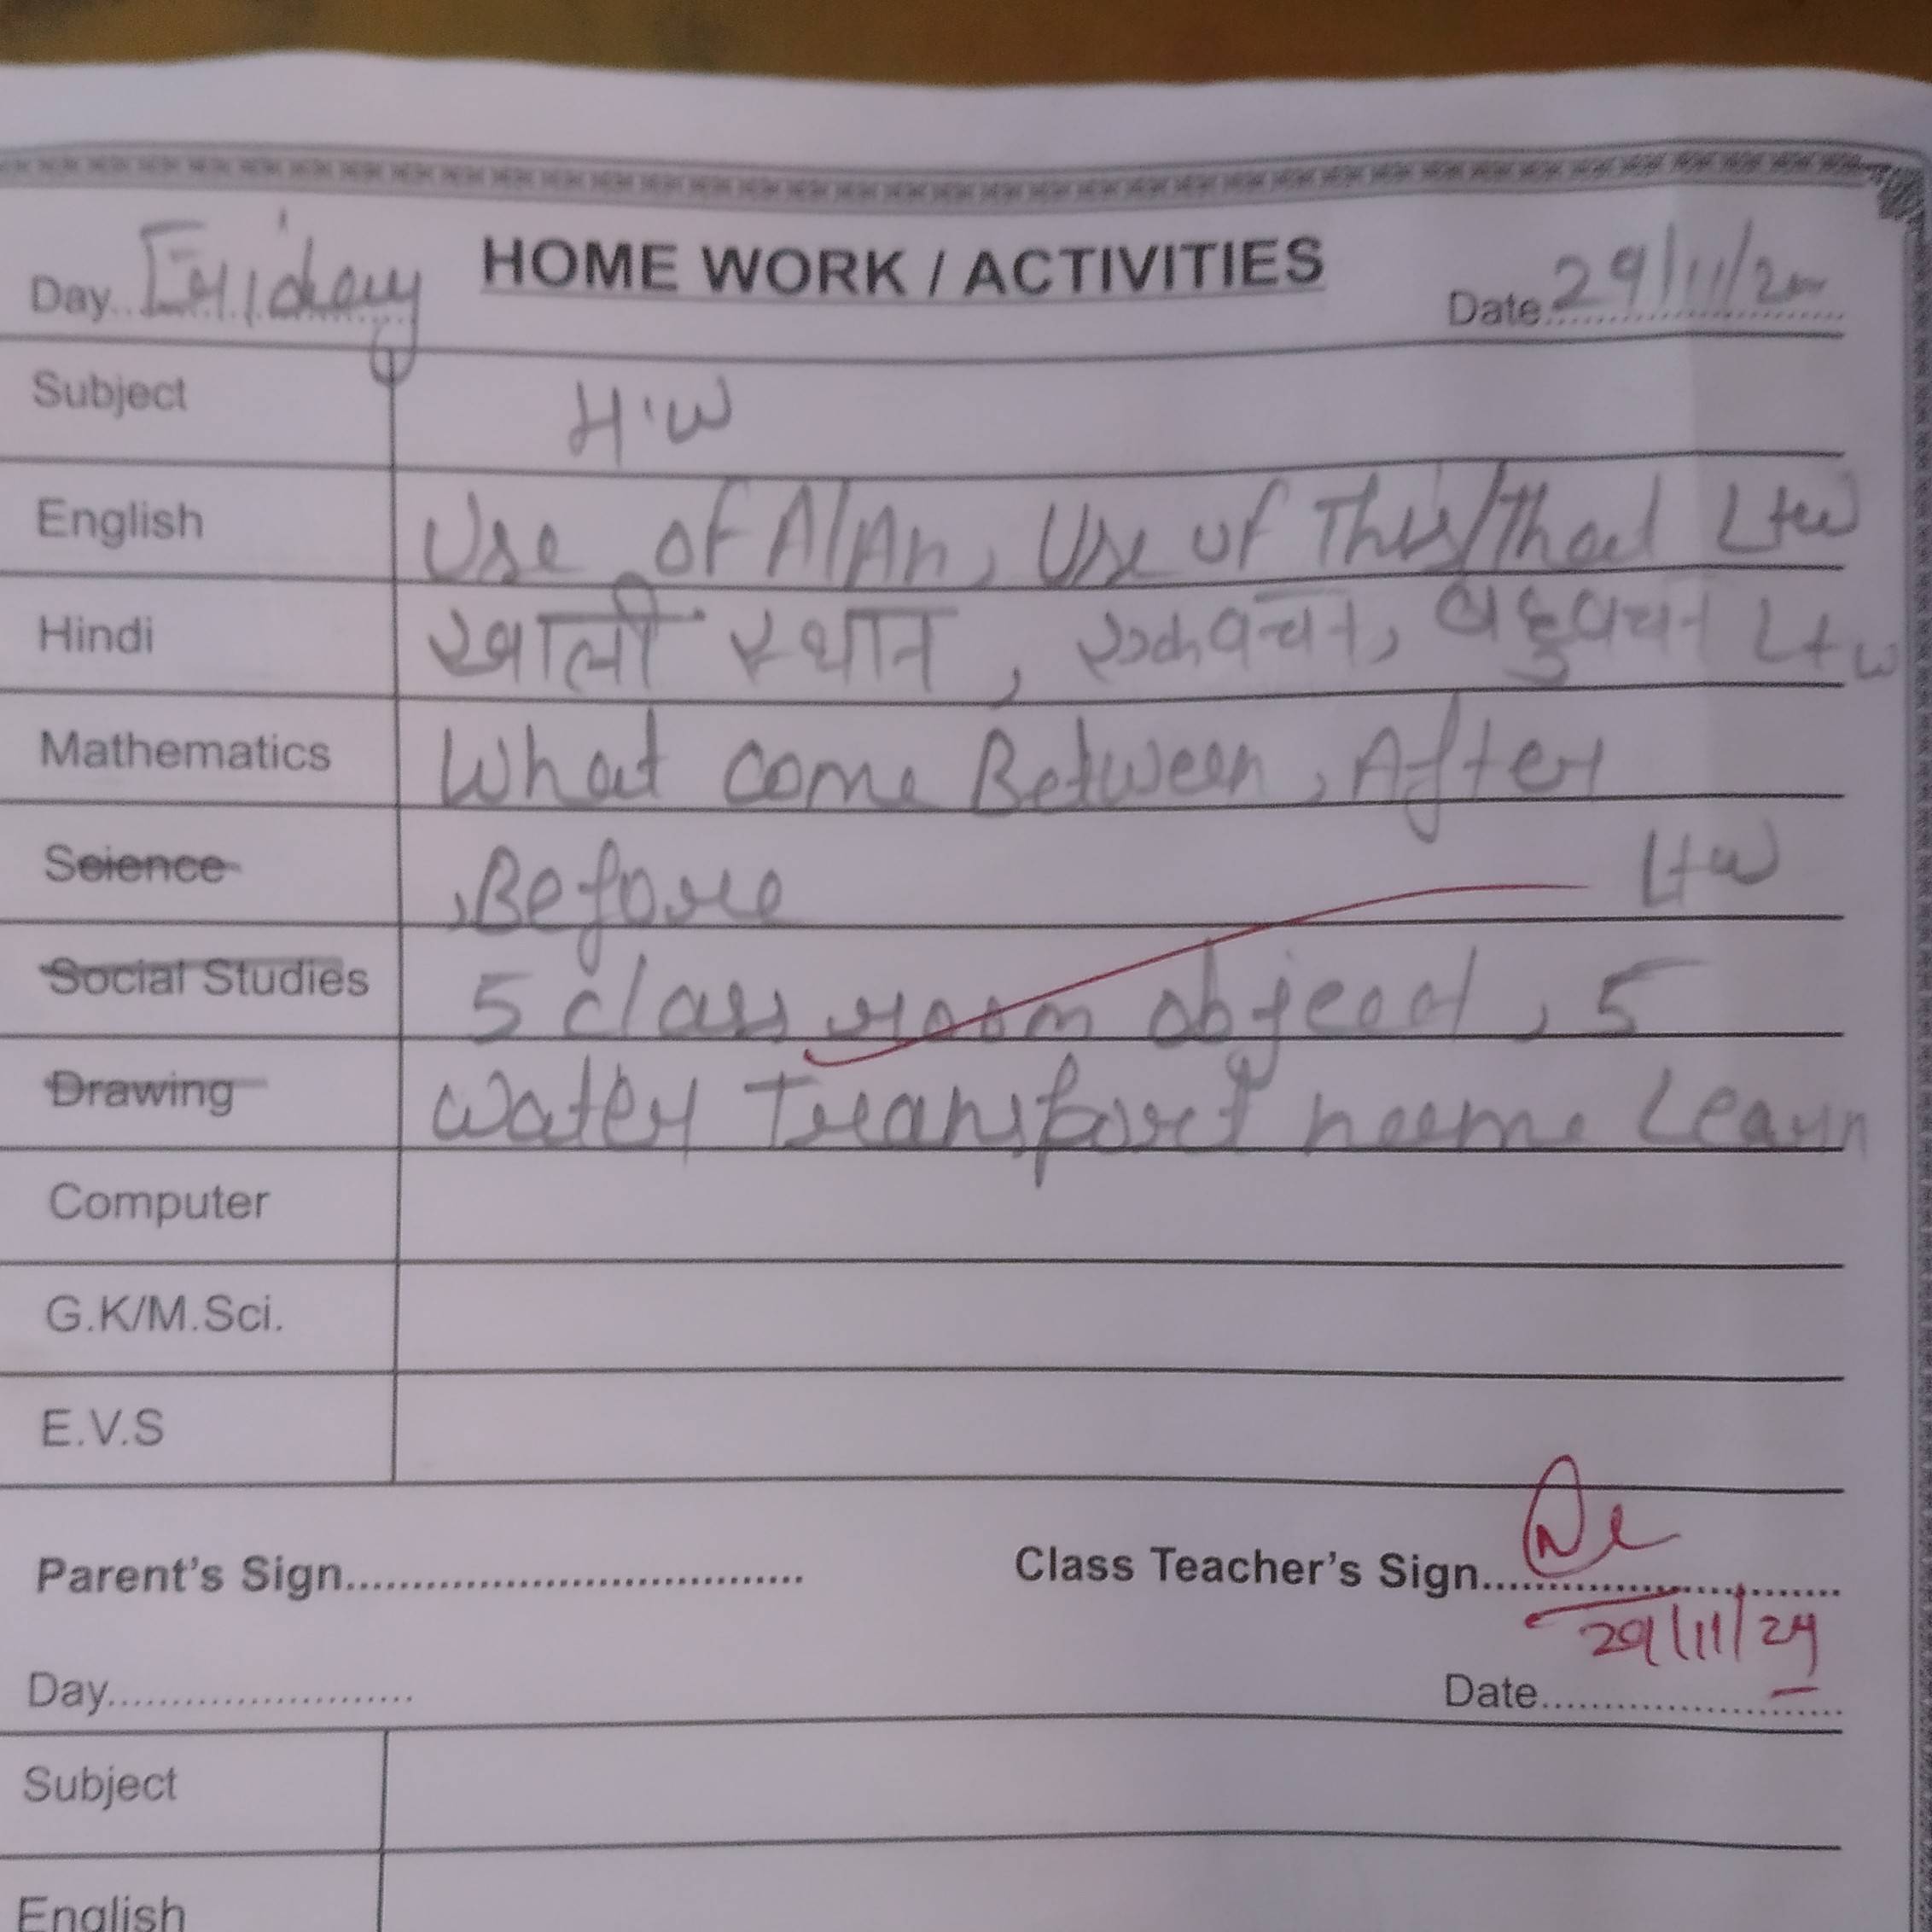 HOME WORK / ACTIVITIES
Day..Friday Date..29/11/2
Subject H.W
English Use of A/An, Use of This/That L+w
Hindi खाली स्थान, एकवचन, बहुवचन L+w
Mathematics What come Between, After
Science , Before L+w
Social Studies 5 class room objead, 5
Drawing water Transport neeme Learn
Computer
G.K/M.Sci.
E.V.S
Parent's Sign.................................. Class Teacher's Sign..........................
29/11/24
Day....................... Date.......................
Subject
English